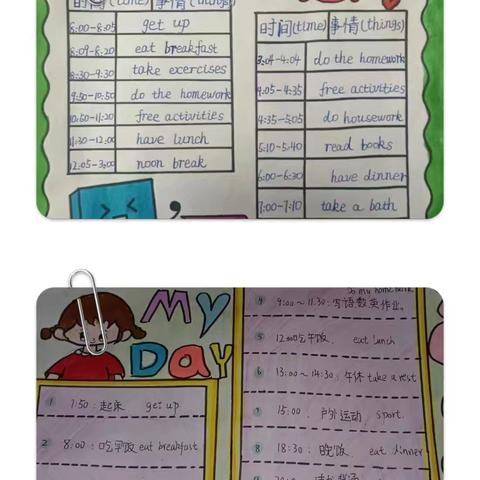 时间(time) 事情(things)
8:00-8:05 get up
8:09-8:20 eat breakfast
8:30-9:30 take exercises
9:50-10:50 do the homework
10:50-11:20 free activities
11:30-12:00 have lunch
12:05-3:00 noon break
时间(time) 事情(things)
3:04-4:04 do the homework
4:05-4:35 free activities
4:35-5:05 do housework
5:10-5:40 read books
6:00-6:30 have dinner
7:00-7:10 take a bath
My
Day
① 7:50:起床 get up
2 8:00:吃早饭 eat breakfast
do my homework
4 9:00~11:30:写语数英作业。
5 12:00吃午饭. eat lunch
6 13:00~14:30:午休 take a rest
7 15:00. 户外运动. sport.
8 18:30:晚饭. eat dinner